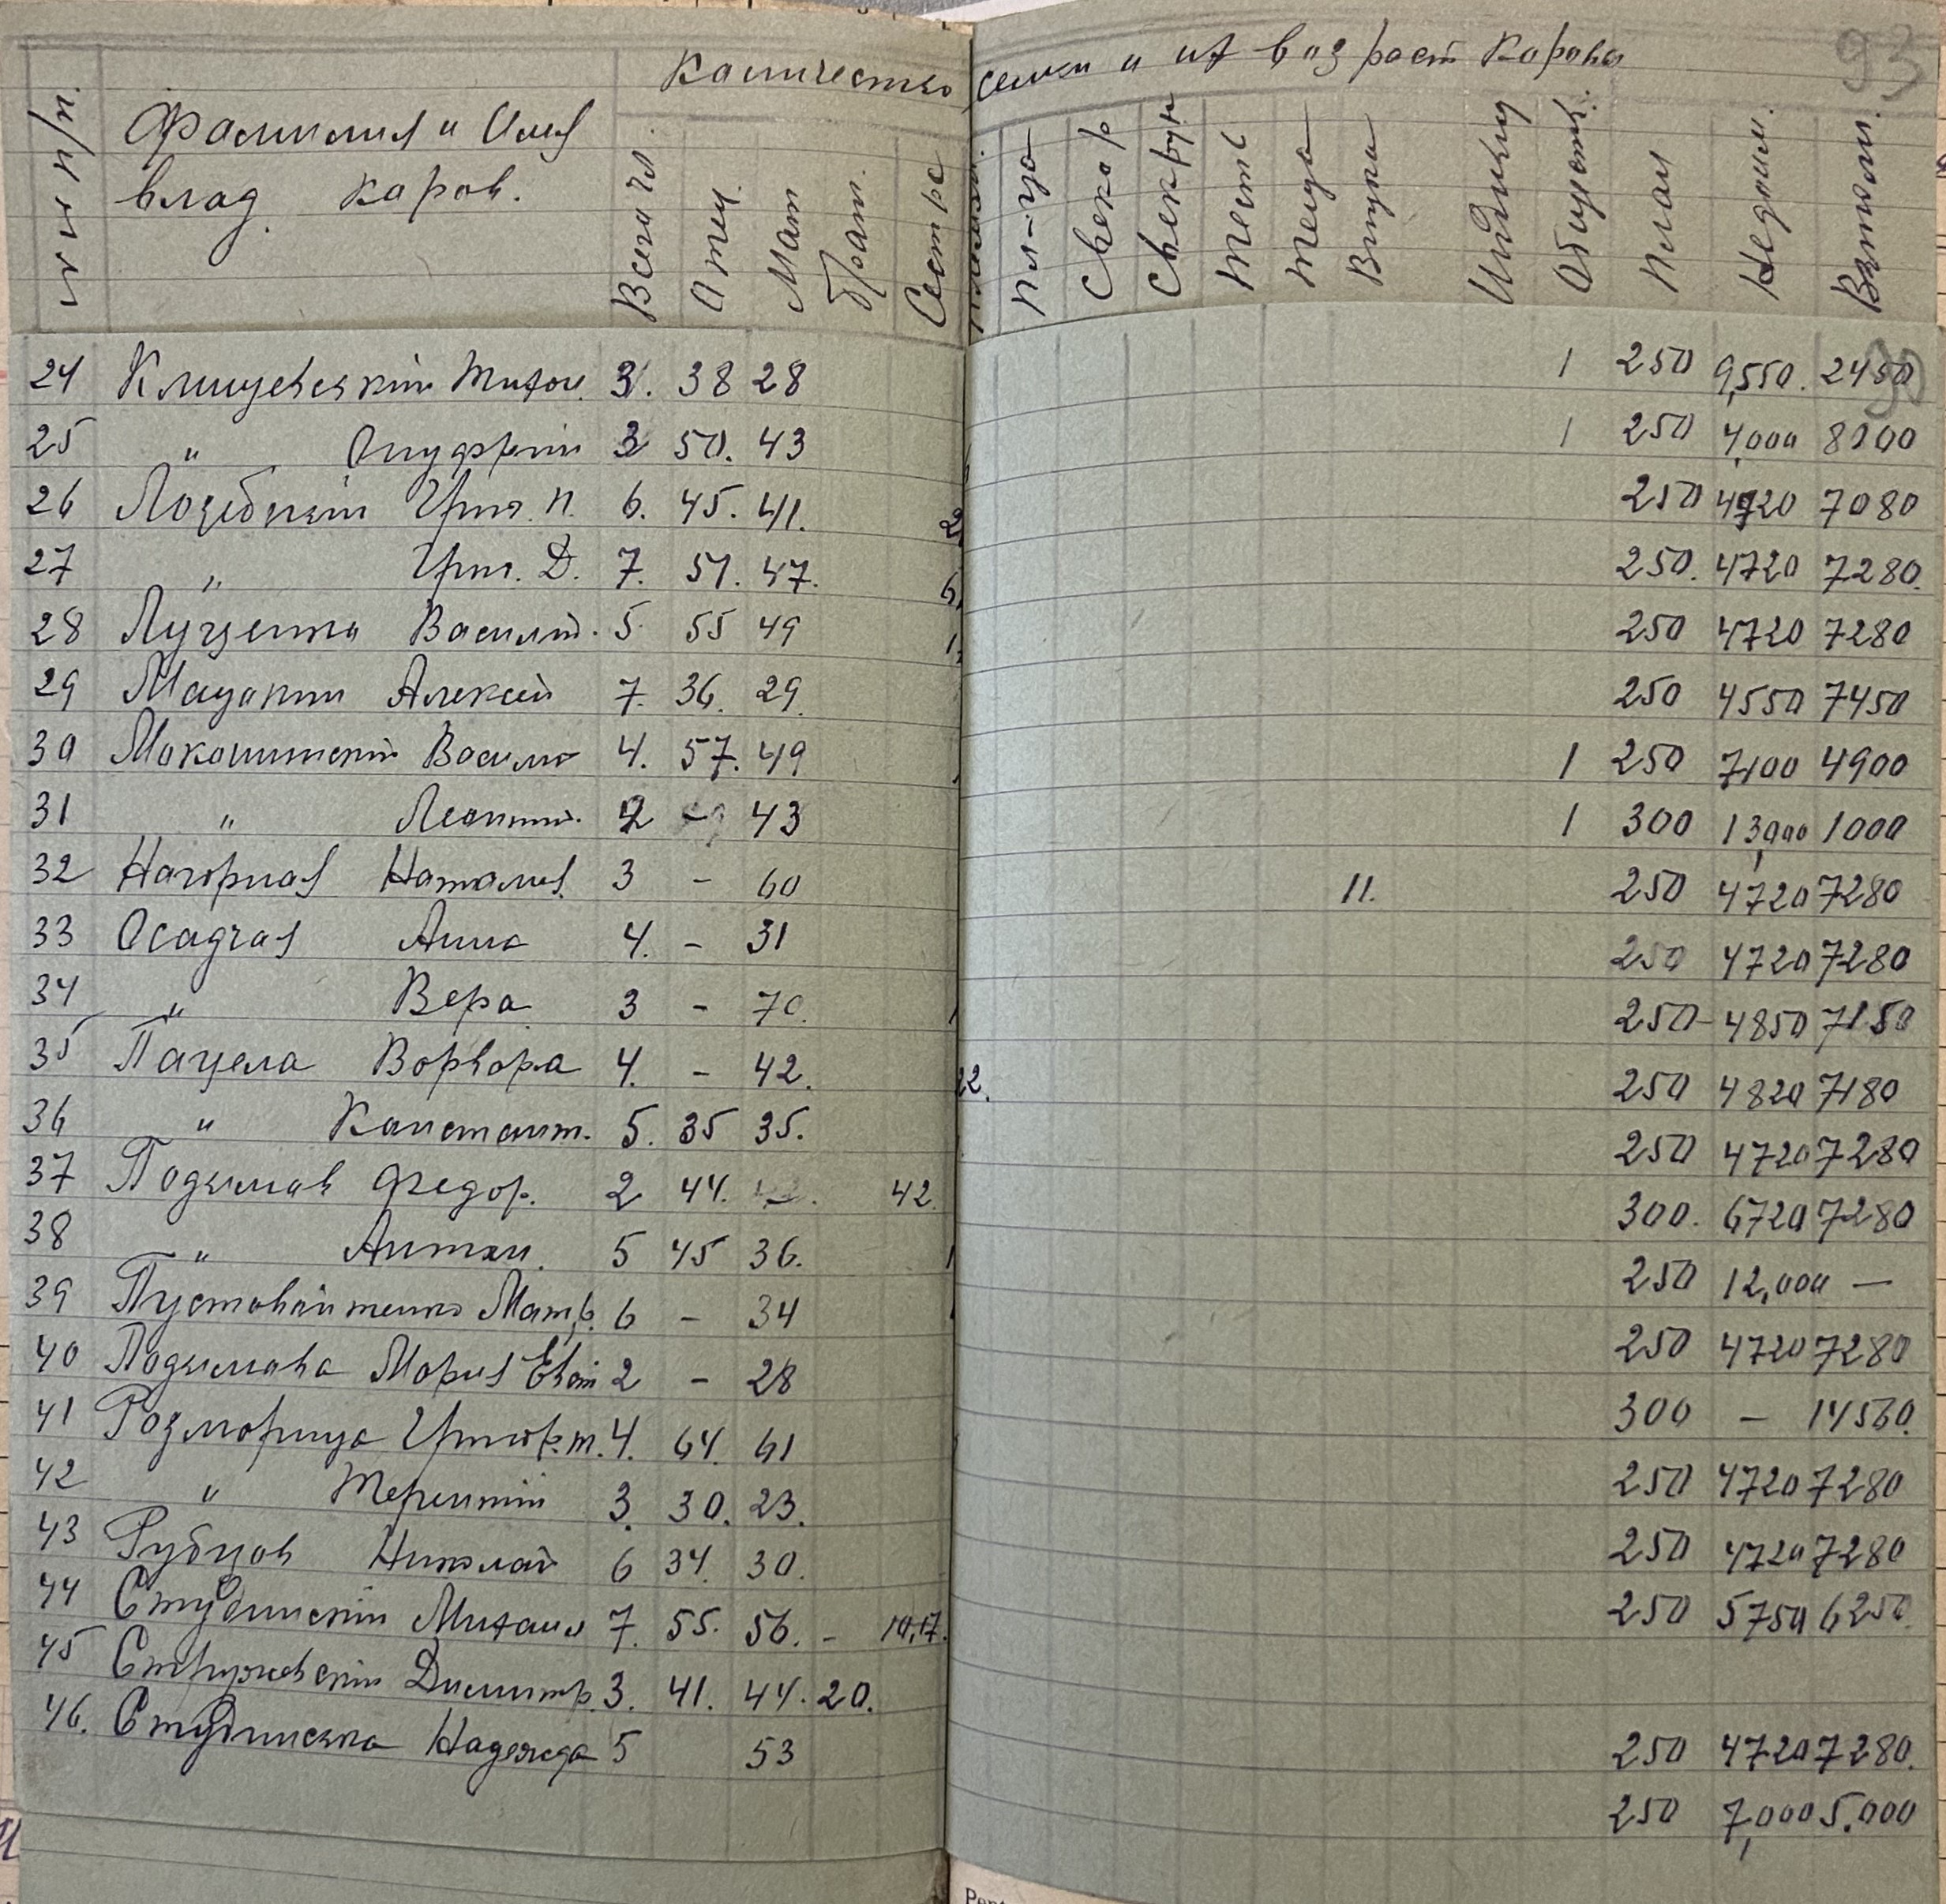 Количество семьи и их возраст Коровы 93
№№ п/п. Фамилия и Имя
влад. коров. Всего чл. Отец Мат Брат. Сестра Пл-ца Свекор Свекрух Тесть Теща Внуки Иждивен Общест. План Недоим. Выполн.
24 Клищевский Тихон 3. 38 28 1 250 9,550. 2450 90
25 " Онуфрий 3 50. 43 1 250 4,000 8000
26 Лозебский Григ. П. 6. 45. 41. 2 250 4720 7080
27 " Григ. Д. 7. 51. 47. 6 250. 4720 7280.
28 Луценко Василий. 5. 55 49 1 250 4720 7280
29 Мацокин Алексей 7. 36. 29. 250 4550 7450
30 Мокошинский Василий 4. 57. 49 1 250 7100 4900
31 " Леонтий. 2 - 43 1 300 13,000 1000
32 Нагорная Наталия. 3 - 60 11. 250 4720 7280
33 Осадчая Анна 4. - 31 250 4720 7280
34 " Вера 3 - 70. 250 - 4850 7150
35 Пацела Ворвора 4. - 42. 22. 250 4820 7180
36 " Констант. 5. 35 35. 250 4720 7280
37 Подымов Федор. 2 44. 42. 300. 6720 7280
38 " Антон. 5 45 36. 250 12,000 —
39 Пустовойтенко Матв. 6 - 34 250 4720 7280
40 Подымова Мария Евт 2 - 28 300 - 14560.
41 Розморица Григор. т. 4. 64. 61 250 4720 7280
42 " Терентий 3. 30. 23. 250 4720 7280
43 Рубцов Николай 6 34. 30. 250 5750 6250.
44 Студинский Михаил 7. 55. 56. - 14,17.
45 Стружевский Димитр. 3. 41. 44. 20. 250 4720 7280.
46. Студинска Надежда 5 53 250 7,000 5.000